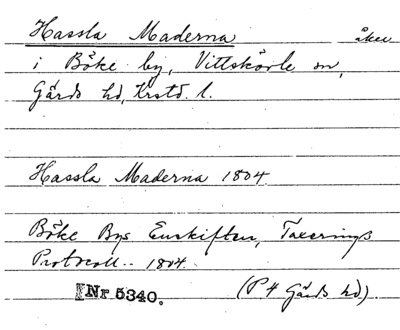 Hassla Maderna åker
i Böke by, Vittskövle sn,
Gärds hd, Krstd. l.
Hassla Maderna 1804
Böke Bys Enskiftes, Taxerings
Protocoll 1804.
Nr 5340. (P4 Gärds hd)